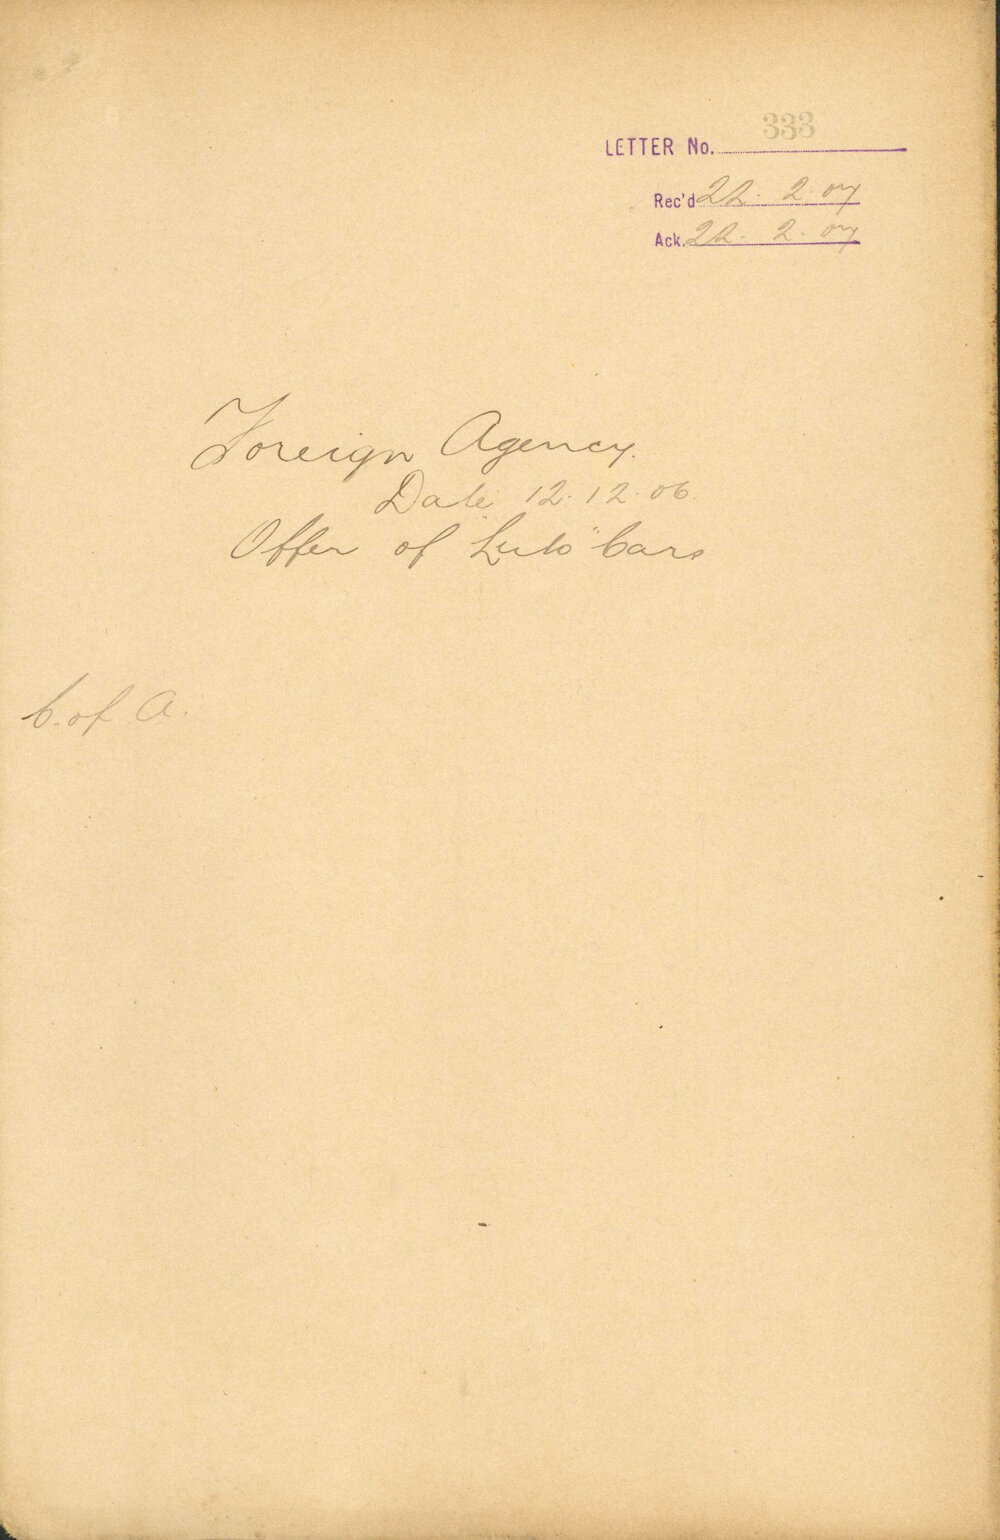 LETTER No. 333
Rec'd 22. 2. 07
Ack. 22. 2. 07
Foreign Agency.
Date 12.12.06.
Offer of Cars
C. of A.